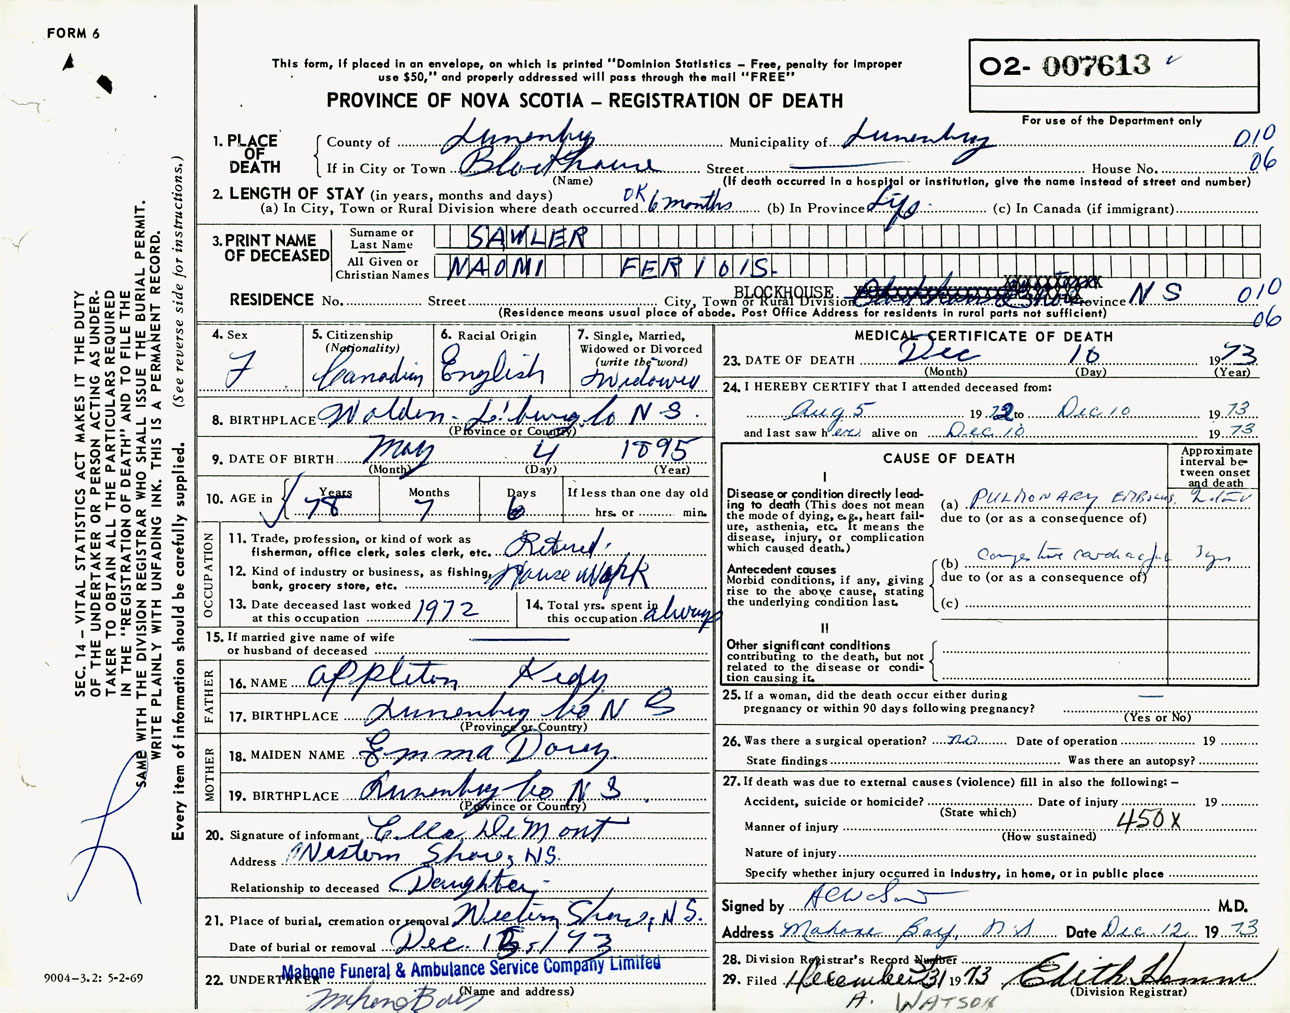 FORM 6
This form, if placed in an envelope, on which is printed "Dominion Statistics – Free, penalty for improper
use $50," and properly addressed will pass through the mail "FREE"
PROVINCE OF NOVA SCOTIA – REGISTRATION OF DEATH
O2- 007613
For use of the Department only
1. PLACE OF DEATH
County of Lunenburg Municipality of Lunenburg 010
If in City or Town Blockhouse Street House No. 06
(Name) (If death occurred in a hospital or institution, give the name instead of street and number)
2. LENGTH OF STAY (in years, months and days)
(a) In City, Town or Rural Division where death occurred OK 6 months (b) In Province (c) In Canada (if immigrant)
3. PRINT NAME OF DECEASED
Surname or Last Name SAWLER
All Given or Christian Names NAOMI FERIOIS.
RESIDENCE No. Street City, Town or Rural Division BLOCKHOUSE Province N S 010
(Residence means usual place of abode. Post Office Address for residents in rural parts not sufficient) 06
4. Sex F
5. Citizenship (Nationality) Canadian
6. Racial Origin English
7. Single, Married, Widowed or Divorced (write the word) Widowed
8. BIRTHPLACE Walden - L'burg Co N S.
(Province or Country)
9. DATE OF BIRTH May 4 1895
(Month) (Day) (Year)
10. AGE in Years 78 Months 7 Days 6 If less than one day old
hrs. or min.
OCCUPATION
11. Trade, profession, or kind of work as fisherman, office clerk, sales clerk, etc. Retired.
12. Kind of industry or business, as fishing, bank, grocery store, etc. House Work
13. Date deceased last worked at this occupation 1972
14. Total yrs. spent in this occupation always
15. If married give name of wife or husband of deceased
FATHER
16. NAME Appleton Kedy
17. BIRTHPLACE Lunenburg Co N S
(Province or Country)
MOTHER
18. MAIDEN NAME Emma Dorey
19. BIRTHPLACE Lunenburg Co N S.
(Province or Country)
20. Signature of informant Ella DeMont
Address Western Shore, NS.
Relationship to deceased Daughter
21. Place of burial, cremation or removal Western Shore, N.S.
Date of burial or removal Dec. /73
22. UNDERTAKER Mahone Funeral & Ambulance Service Company Limited
(Name and address)
Mahone Bay
MEDICAL CERTIFICATE OF DEATH
23. DATE OF DEATH Dec 10 1973
(Month) (Day) (Year)
24. I HEREBY CERTIFY that I attended deceased from:
Aug 5 1972 to Dec 10 1973
and last saw her alive on Dec. 10 1973
CAUSE OF DEATH
Approximate interval between onset and death
I
Disease or condition directly leading to death (This does not mean the mode of dying, e.g., heart failure, asthenia, etc. It means the disease, injury, or complication which caused death.)
(a) PULMONARY EMBOLUS
due to (or as a consequence of)
Antecedent causes
Morbid conditions, if any, giving rise to the above cause, stating the underlying condition last.
(b) Congestive cardiac 3 yrs
due to (or as a consequence of)
(c)
II
Other significant conditions
contributing to the death, but not related to the disease or condition causing it.
25. If a woman, did the death occur either during pregnancy or within 90 days following pregnancy?
(Yes or No)
26. Was there a surgical operation? no Date of operation 19
State findings Was there an autopsy?
27. If death was due to external causes (violence) fill in also the following: –
Accident, suicide or homicide? Date of injury 19
(State which)
Manner of injury 450X
(How sustained)
Nature of injury
Specify whether injury occurred in industry, in home, or in public place
Signed by M.D.
Address Mahone Bay, N.S Date Dec 12 1973
28. Division Registrar's Record Number
29. Filed December 31 1973
(Division Registrar)
A. WATSON
SEC. 14 – VITAL STATISTICS ACT MAKES IT THE DUTY
OF THE UNDERTAKER OR PERSON ACTING AS UNDER-
TAKER TO OBTAIN ALL THE PARTICULARS REQUIRED
IN THE "REGISTRATION OF DEATH" AND TO FILE THE
SAME WITH THE DIVISION REGISTRAR WHO SHALL ISSUE THE BURIAL PERMIT.
WRITE PLAINLY WITH UNFADING INK. THIS IS A PERMANENT RECORD.
Every item of information should be carefully supplied. (See reverse side for instructions.)
9004–3.2: 5-2-69